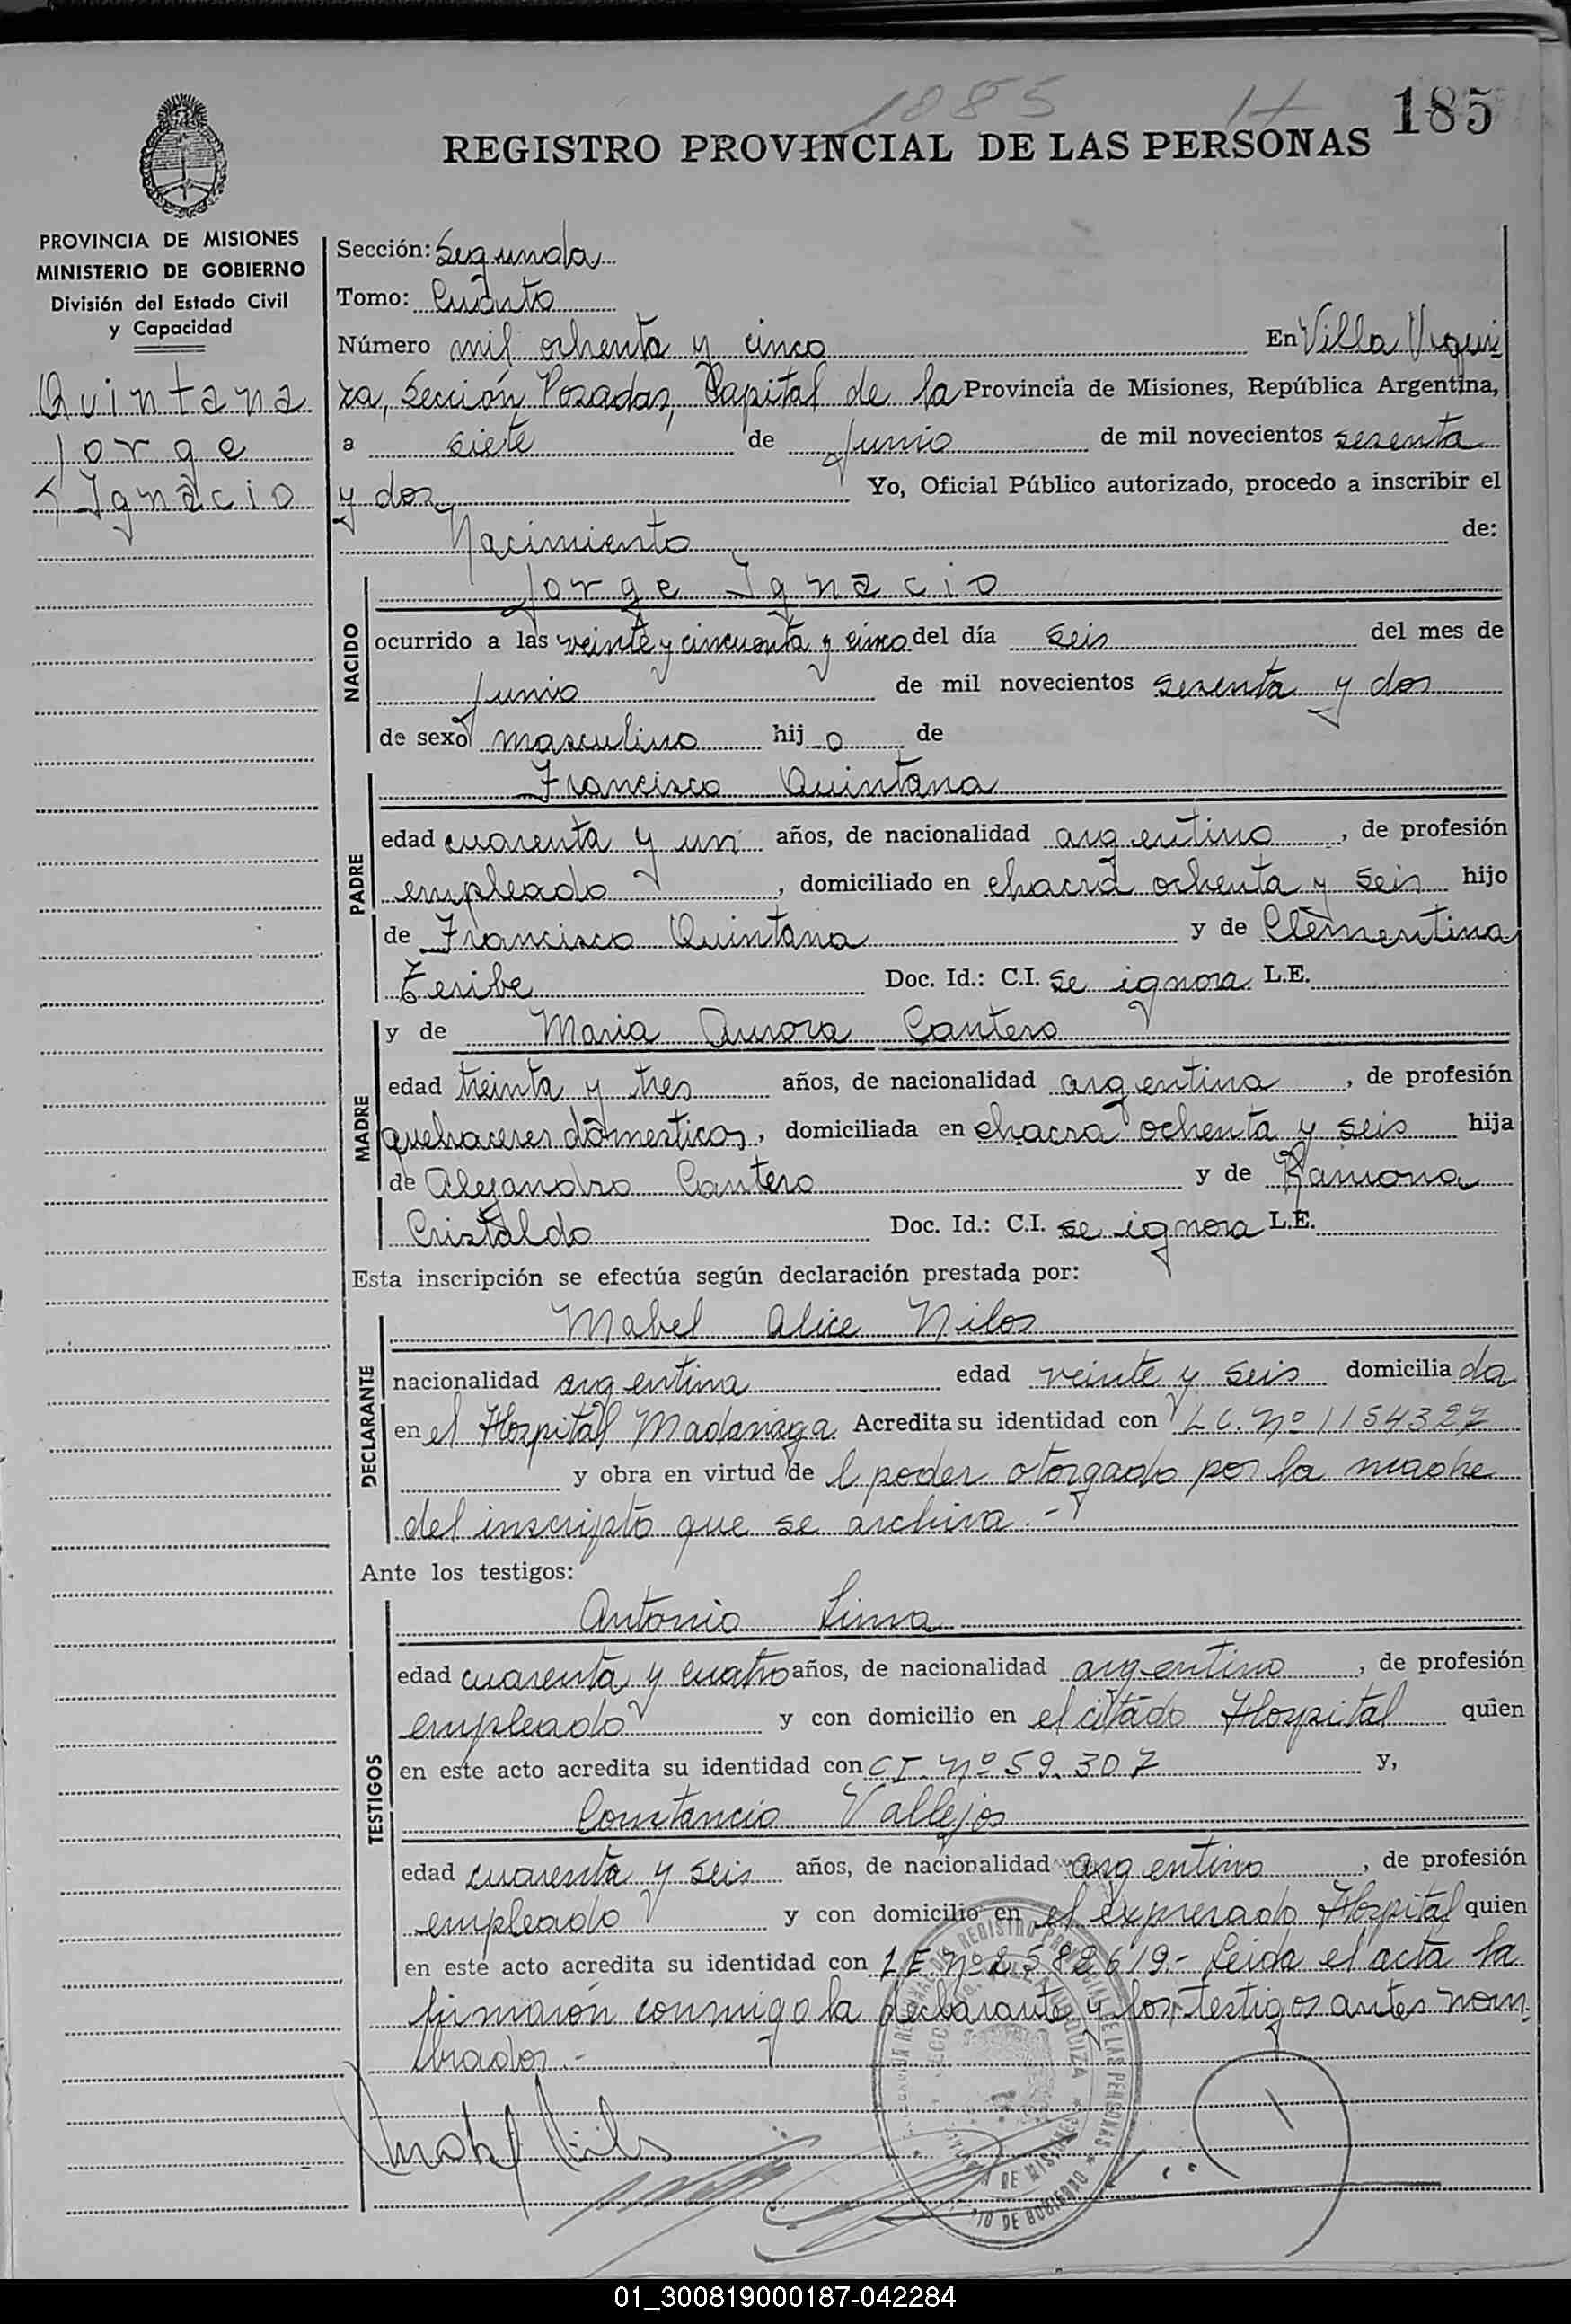 1085 H 185
REGISTRO PROVINCIAL DE LAS PERSONAS
PROVINCIA DE MISIONES
MINISTERIO DE GOBIERNO
División del Estado Civil
y Capacidad
Quintana
Jorge
Ignacio
Sección: Segunda
Tomo: Cuarto
Número mil ochenta y cinco En Villa Urqui
za, Sección Posadas, Capital de la Provincia de Misiones, República Argentina,
a siete de Junio de mil novecientos sesenta
y dos Yo, Oficial Público autorizado, procedo a inscribir el
Nacimiento de:
NACIDO
Jorge Ignacio
ocurrido a las veinte y cincuenta y cinco del día seis del mes de
Junio de mil novecientos sesenta y dos
de sexo masculino hij o de
PADRE
Francisco Quintana
edad cuarenta y un años, de nacionalidad argentino, de profesión
empleado, domiciliado en chacra ochenta y seis hijo
de Francisco Quintana y de Clementina
Doc. Id.: C.I. se ignora L.E.
MADRE
y de Maria Aurora Cantero
edad treinta y tres años, de nacionalidad argentina, de profesión
quehaceres domesticos, domiciliada en chacra ochenta y seis hija
de Alejandro Cantero y de Ramona
Cristaldo Doc. Id.: C.I. se ignora L.E.
Esta inscripción se efectúa según declaración prestada por:
DECLARANTE
Mabel Alice Nilos
nacionalidad argentina edad veinte y seis domicilia da
en el Hospital Madariaga Acredita su identidad con L.C. Nº 1154327
y obra en virtud de l poder otorgado por la madre
del inscripto que se archiva.-
Ante los testigos:
TESTIGOS
Antonio Lima
edad cuarenta y cuatro años, de nacionalidad argentino, de profesión
empleado y con domicilio en el citado Hospital quien
en este acto acredita su identidad con CI. Nº 59.307 y,
Constancio Vallejos
edad cuarenta y seis años, de nacionalidad argentino, de profesión
empleado y con domicilio en el expresado Hospital quien
en este acto acredita su identidad con L.E. Nº 2582619.- Leida el acta la
firmaron conmigo la declarante y los testigos antes nom
brados.-
01_300819000187-042284